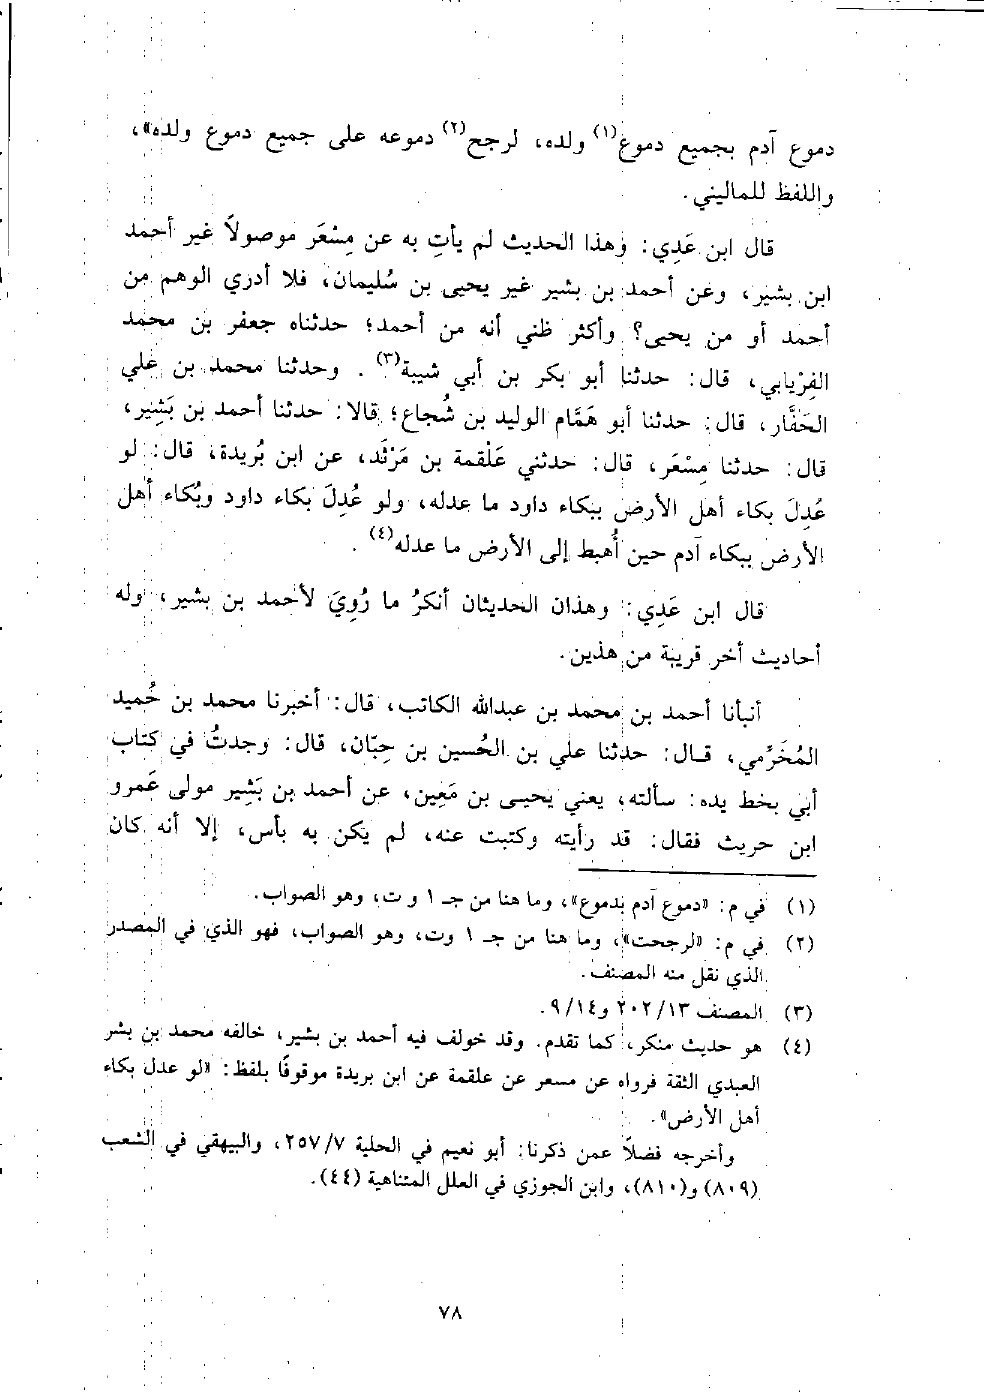 دموع آدم بجميع دموع(١) ولده، لرجح(٢) دموعه على جميع دموع ولده»،
واللفظ للماليني.
قال ابن عَدِي: وهذا الحديث لم يأتِ به عن مِسْعَر موصولاً غير أحمد
ابن بشير، وعن أحمد بن بشير غير يحيى بن سُليمان، فلا أدري الوهم من
أحمد أو من يحيى؟ وأكثر ظني أنه من أحمد؛ حدثناه جعفر بن محمد
الفِرْيابي، قال: حدثنا أبو بكر بن أبي شيبة(٣) . وحدثنا محمد بن علي
الحَفَّار، قال: حدثنا أبو هَمَّام الوليد بن شُجاع؛ قالا: حدثنا أحمد بن بَشِير،
قال: حدثنا مِسْعَر، قال: حدثني عَلْقمة بن مَرْثَد، عن ابن بُريدة، قال: لو
عُدِلَ بكاء أهل الأرض ببكاء داود ما عدله، ولو عُدِلَ بكاء داود وبُكاء أهل
الأرض ببكاء آدم حين أُهبط إلى الأرض ما عدله(٤) .
قال ابن عَدِي: وهذان الحديثان أنكرُ ما رُوِيَ لأحمد بن بشير، وله
أحاديث أخر قريبة من هذين.
أنبأنا أحمد بن محمد بن عبدالله الكاتب، قال: أخبرنا محمد بن حُميد
المُخَرِّمي، قال: حدثنا علي بن الحُسين بن حِبّان، قال: وجدتُ في كتاب
أبي بخط يده: سألته، يعني يحيى بن مَعِين، عن أحمد بن بَشِير مولى عَمرو
ابن حريث فقال: قد رأيته وكتبت عنه، لم يكن به بأس، إلا أنه كان
(١) في م: «دموع آدم بدموع»، وما هنا من جـ ١ و ت، وهو الصواب.
(٢) في م: «لرجحت»، وما هنا من جـ ١ وت، وهو الصواب، فهو الذي في المصدر
الذي نقل منه المصنف.
(٣) المصنف ١٣/ ٢٠٢ و١٤/ ٩.
(٤) هو حديث منكر، كما تقدم. وقد خولف فيه أحمد بن بشير، خالفه محمد بن بشر
العبدي الثقة فرواه عن مسعر عن علقمة عن ابن بريدة موقوفًا بلفظ: «لو عدل بكاء
أهل الأرض».
وأخرجه فضلاً عمن ذكرنا: أبو نعيم في الحلية ٧/ ٢٥٧، والبيهقي في الشعب
(٨٠٩) و(٨١٠)، وابن الجوزي في العلل المتناهية (٤٤).
٧٨